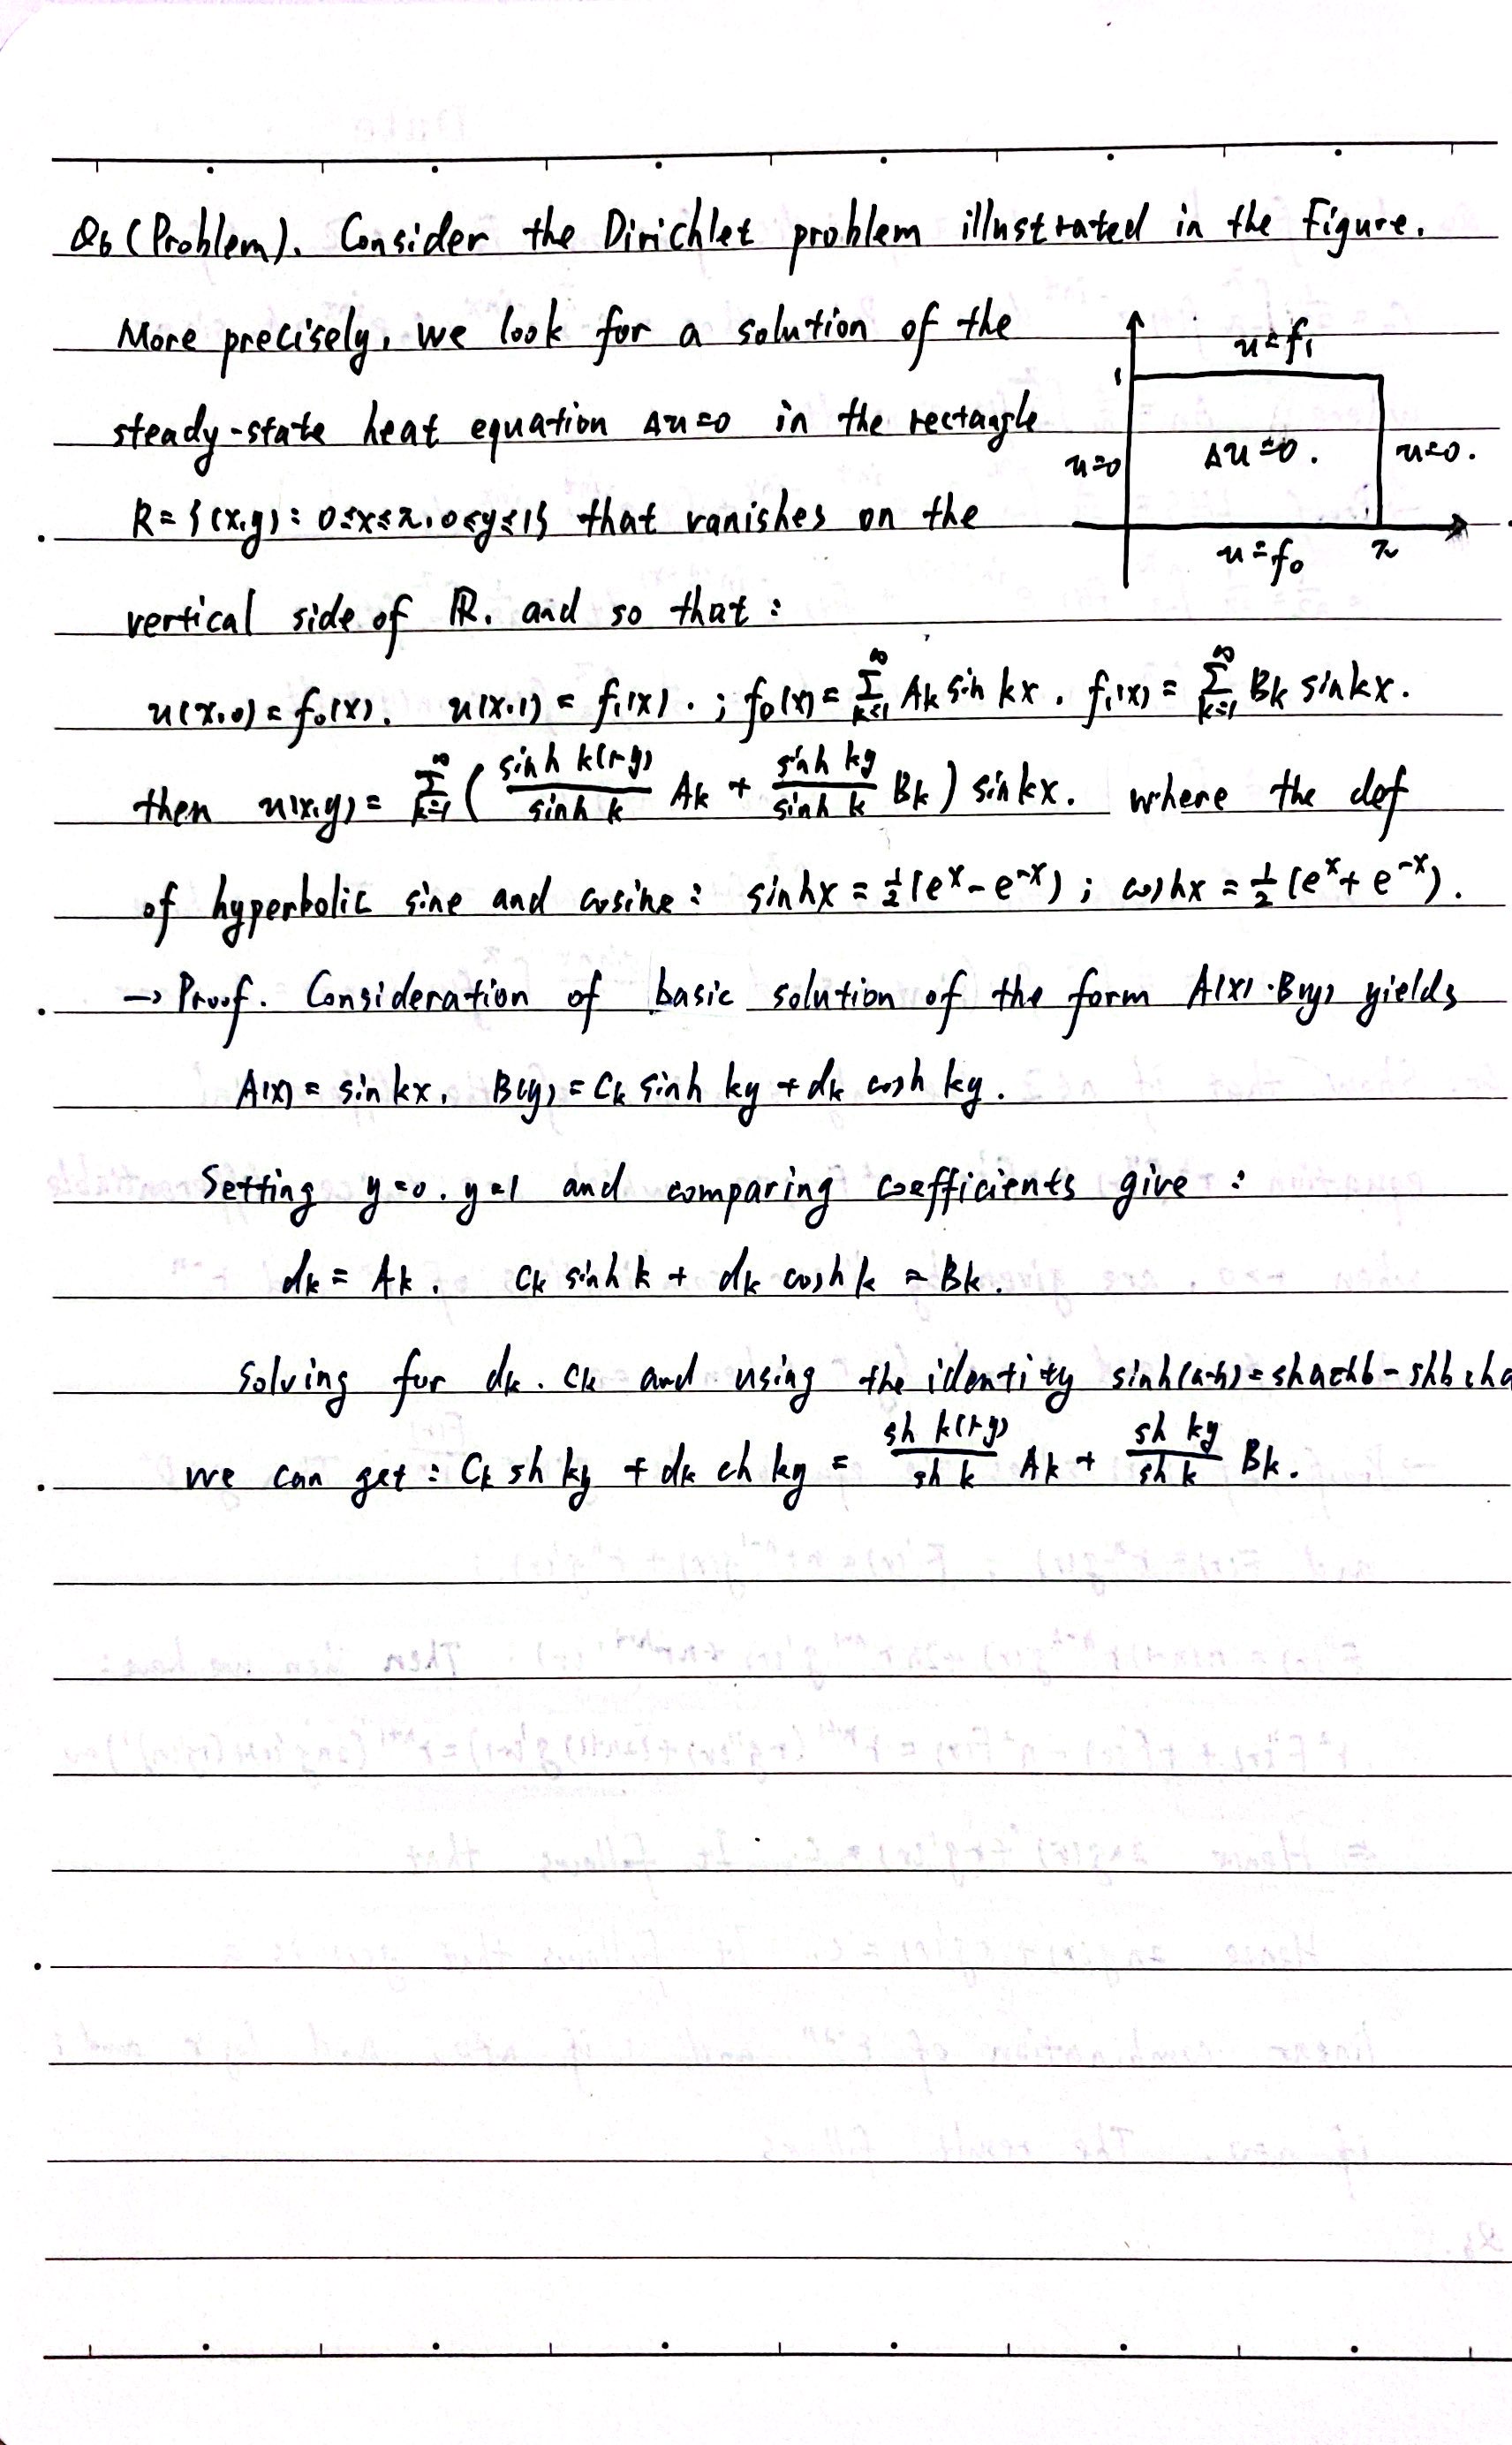 Q6 (Problem). Consider the Dirichlet problem illustrated in the Figure.
More precisely, we look for a solution of the
steady-state heat equation Δu=0 in the rectangle
R={(x,y): 0≤x≤π, 0≤y≤1} that vanishes on the
vertical side of R. and so that:
u=f₁
1
u=0 Δu=0. u=0.
u=f₀ π
u(x,0)=f₀(x). u(x,1)=f₁(x).; f₀(x)=∑_{k=1}^{∞} Ak sin kx. f₁(x)=∑_{k=1}^{∞} Bk sinkx.
then u(x,y)=∑_{k=1}^{∞} ( sinh k(1-y) / sinh k Ak + sinh ky / sinh k Bk ) sinkx. where the def
of hyperbolic sine and cosine: sinhx = 1/2 (e^x - e^{-x}); coshx = 1/2 (e^x + e^{-x}).
→ Proof. Consideration of basic solution of the form A(x)·B(y) yields
A(x) = sin kx, B(y) = Ck sinh ky + dk cosh ky.
Setting y=0. y=1 and comparing coefficients give:
dk = Ak. Ck sinh k + dk cosh k = Bk.
Solving for dk. Ck and using the identity sinh(a-b)=shachb-shbcha
we can get: Ck sh ky + dk ch ky = sh k(1-y) / sh k Ak + sh ky / sh k Bk.